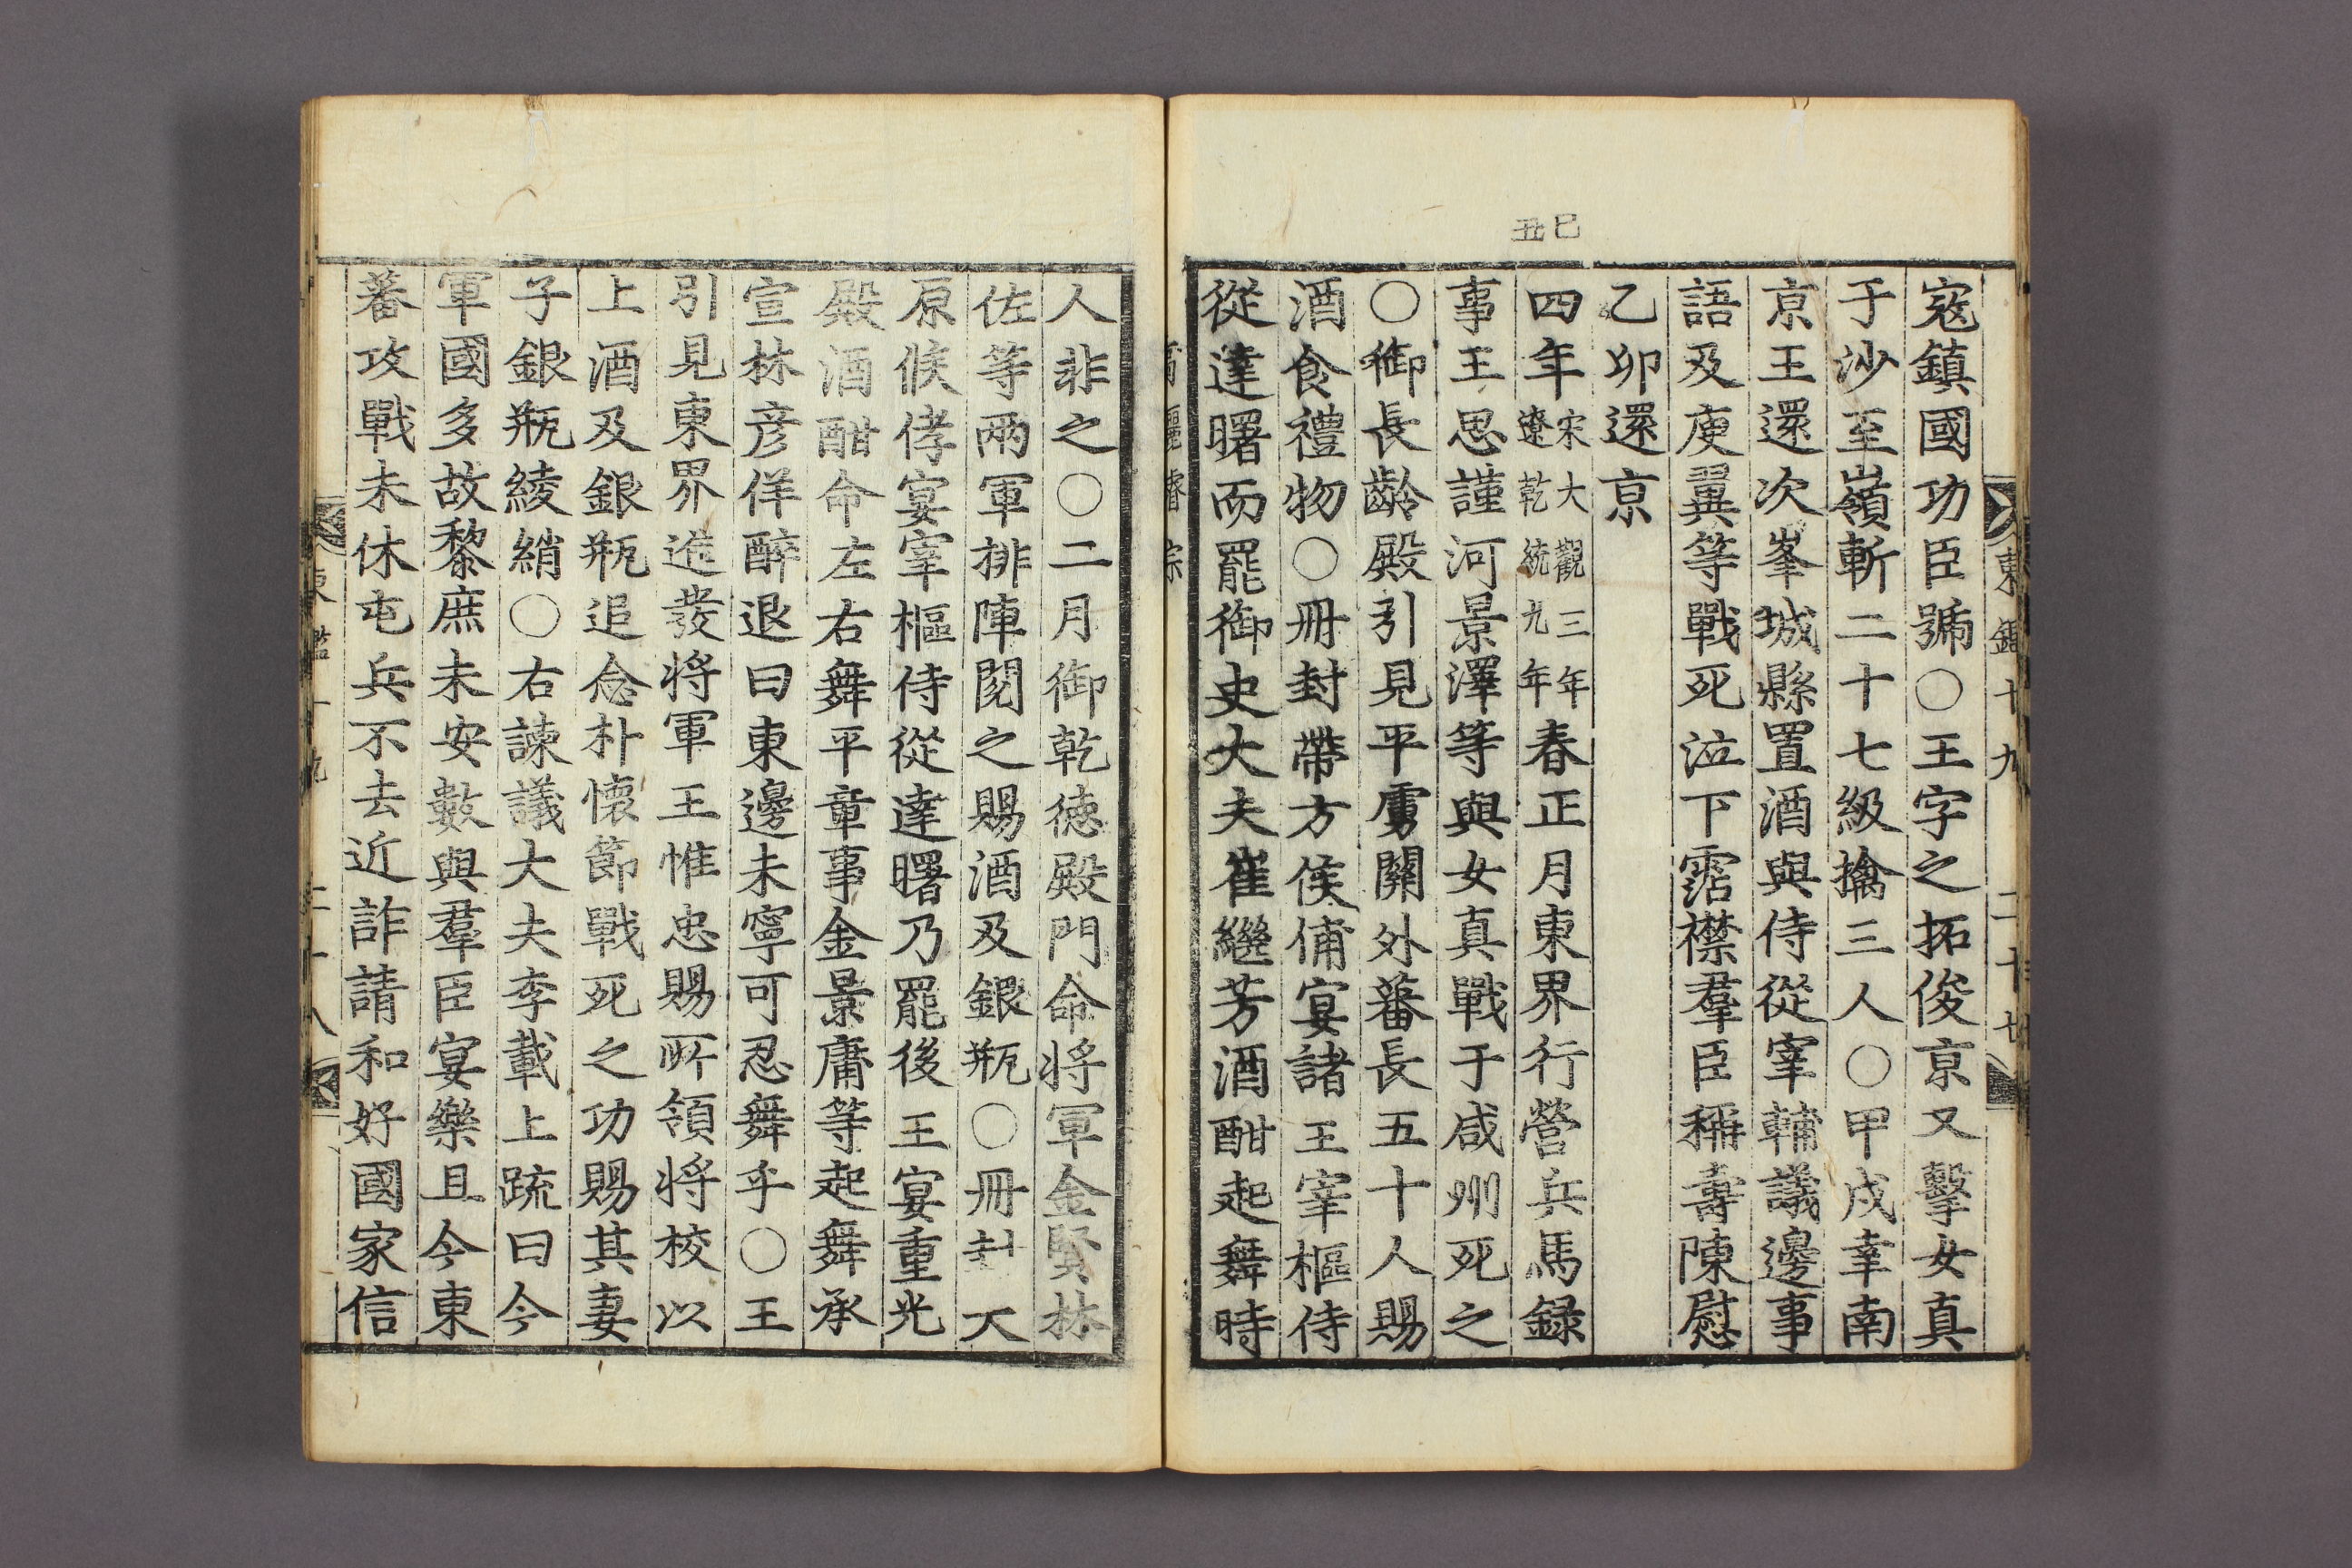 東鑑十九
二十七
寇鎮國功臣號○王字之拓俊京又擊女真
于沙至嶺斬二十七級擒三人○甲戌幸南
京王還次峯城縣置酒與侍從宰輔議邊事
語及庾翼等戰死泣下霑襟羣臣稱壽陳慰
乙卯還京
己丑
四年宋大觀三年遼乾統九年春正月東界行營兵馬録
事王思謹河景澤等與女真戰于咸州死之
○御長齡殿引見平虜關外蕃長五十人賜
酒食禮物○冊封帶方侯俌宴諸王宰樞侍
從達曙而罷御史大夫崔繼芳酒酣起舞時
高麗睿宗
人非之○二月御乾德殿門命將軍金賢林
佐等兩軍排陣閱之賜酒及銀瓶○冊封大
原侯侾宴宰樞侍從達曙乃罷後王宴重光
殿酒酣命左右舞平章事金景庸等起舞承
宣林彦佯醉退曰東邊未寧可忍舞乎○王
引見東界進發將軍王惟忠賜所領將校以
上酒及銀瓶追念朴懷節戰死之功賜其妻
子銀瓶綾綃○右諫議大夫李載上疏曰今
軍國多故黎庶未安數與羣臣宴樂且今東
蕃攻戰未休屯兵不去近詐請和好國家信
東鑑十九
二十八